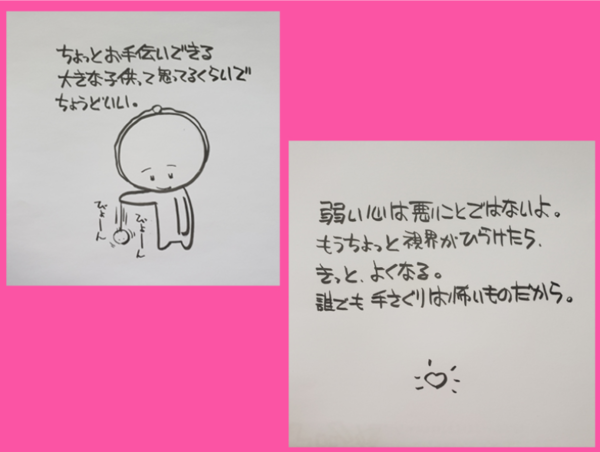 ちょっとお手伝いできる
大きな子供って思ってるくらいで
ちょうどいい。
びょーん
びょーん
弱い心は悪いことではないよ。
もうちょっと視界がひらけたら、
きっと、よくなる。
誰でも手さぐりは怖いものだから。